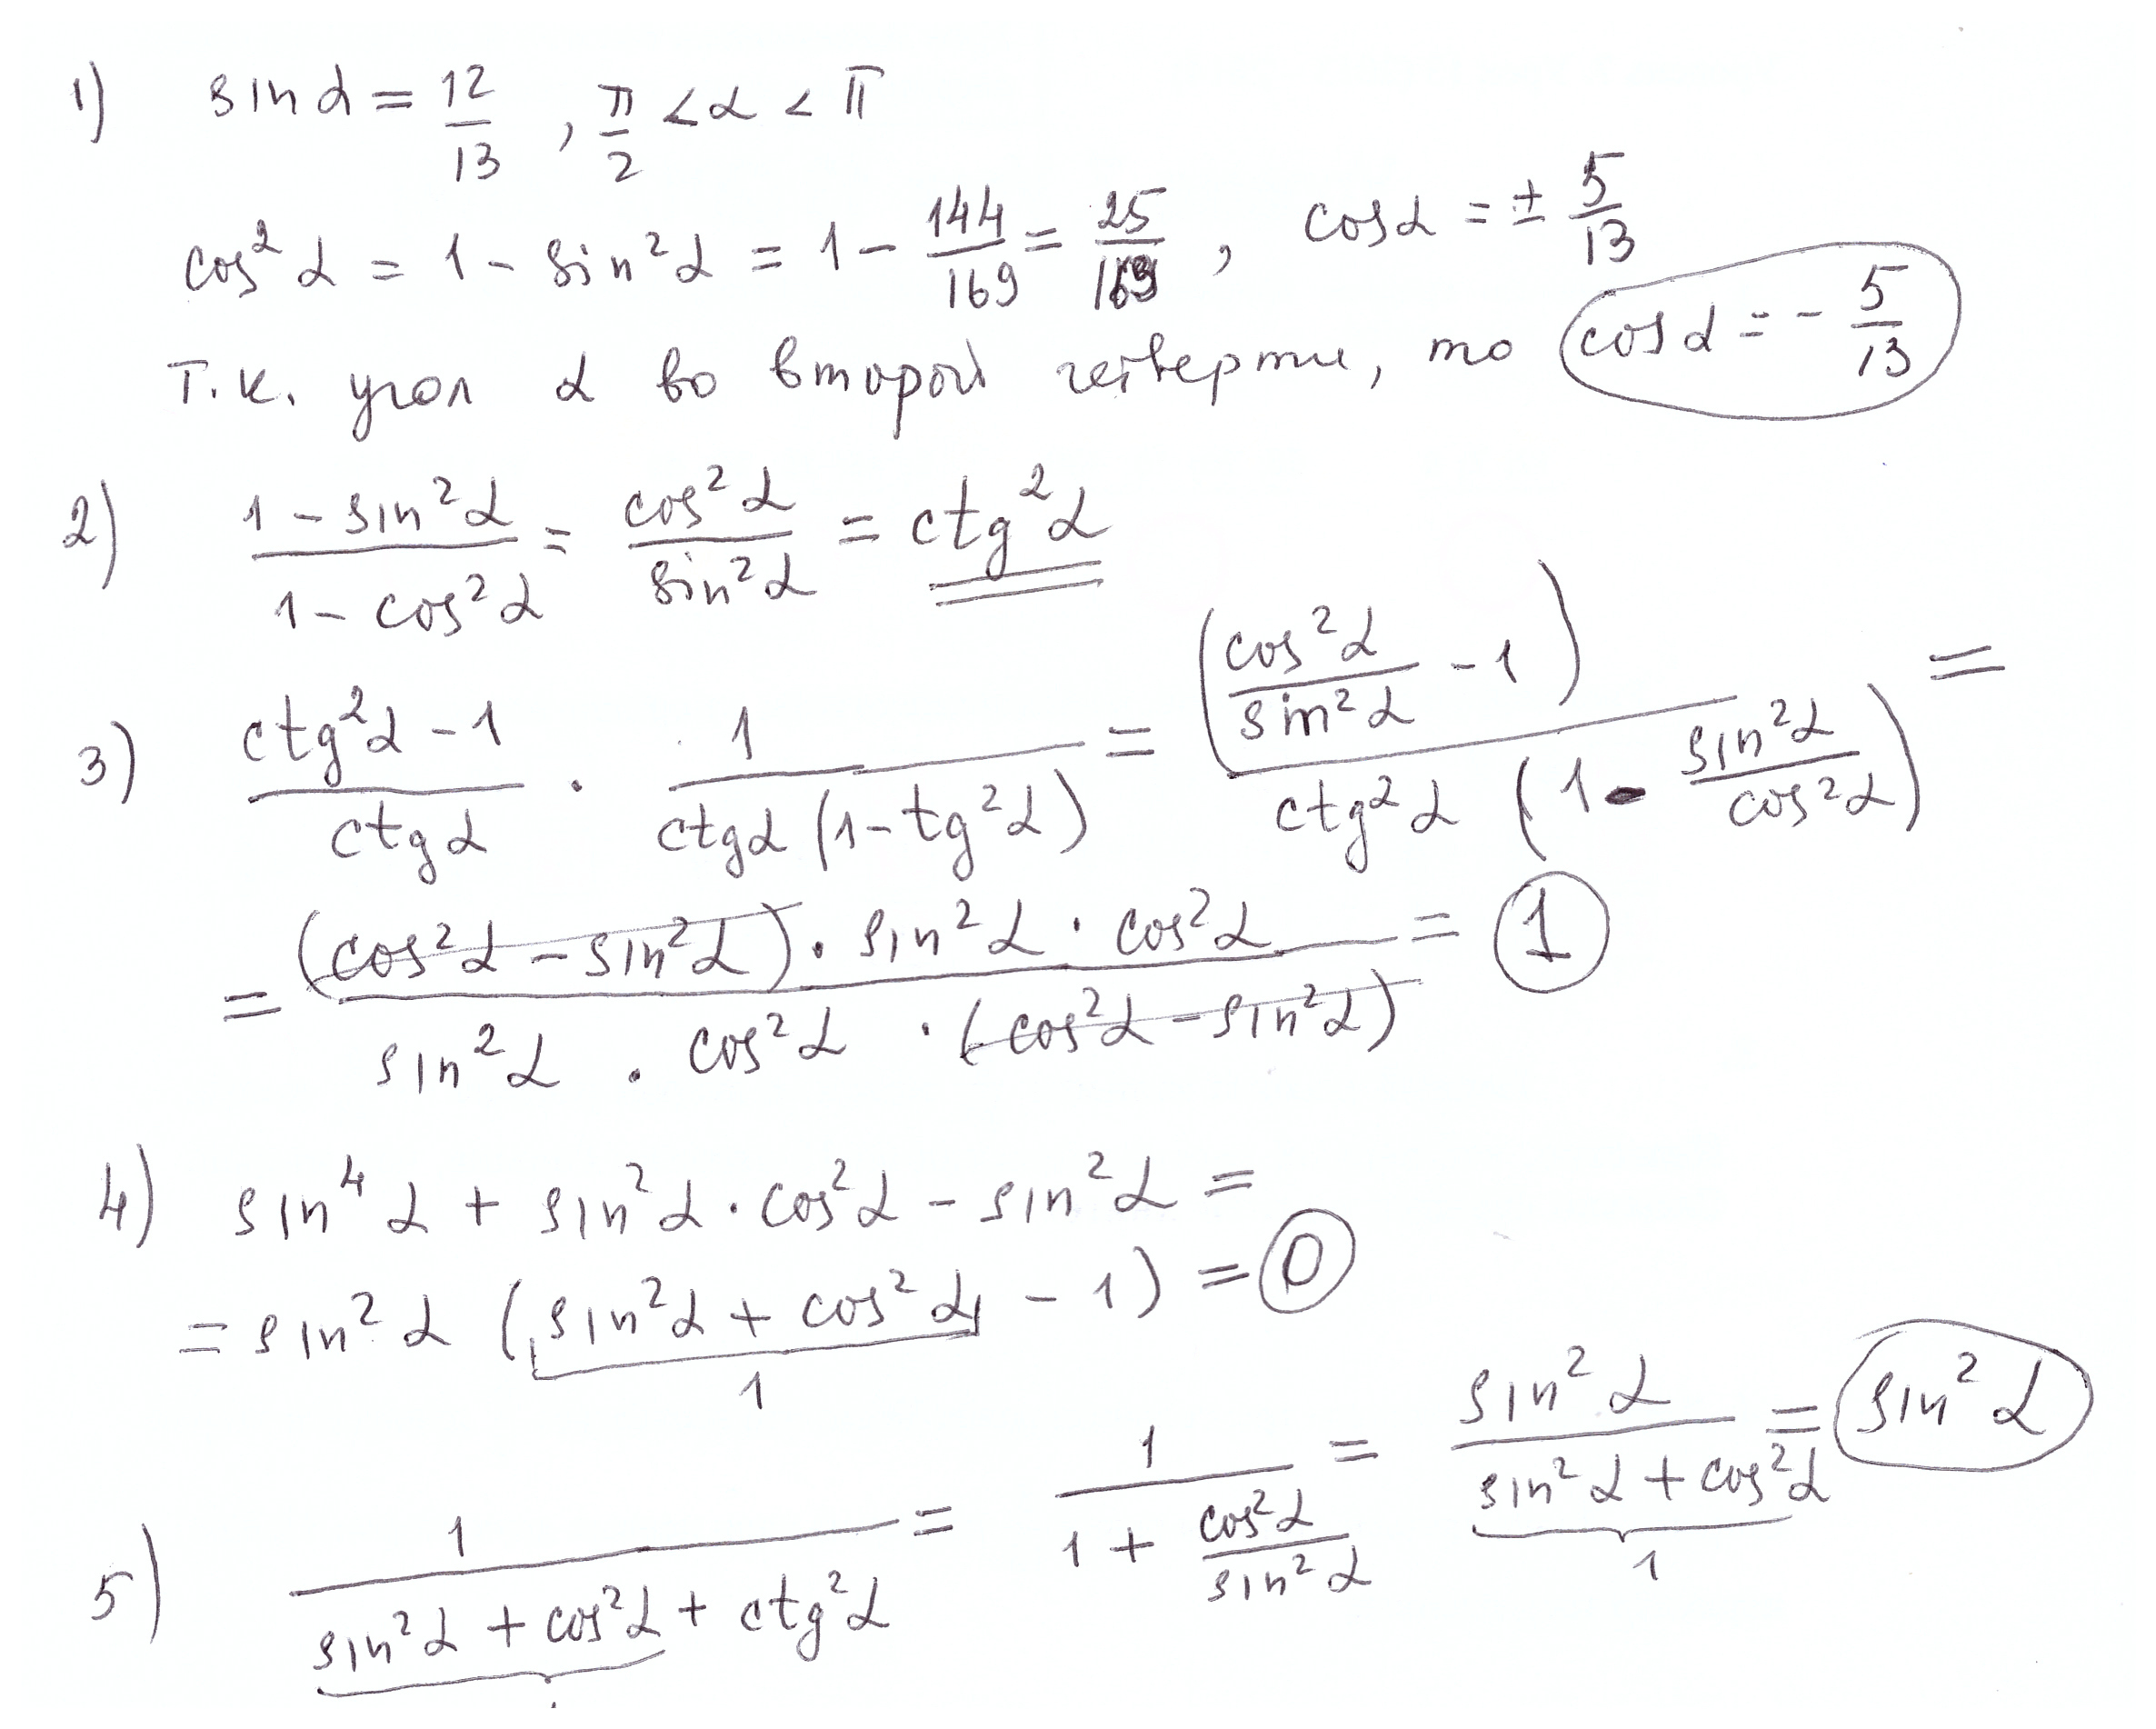 1) sin α = 12/13 , π/2 < α < π
cos² α = 1 - sin² α = 1 - 144/169 = 25/169 , cos α = ± 5/13
Т.к. угол α во второй четверти, то cos α = - 5/13
2) (1 - sin² α)/(1 - cos² α) = cos² α/sin² α = ctg² α
3) (ctg² α - 1)/(ctg α) · 1/(ctg α (1 - tg² α)) = (cos² α/sin² α - 1)/(ctg² α (1 - sin² α/cos² α)) =
= ((cos² α - sin² α) · sin² α · cos² α)/(sin² α · cos² α · (cos² α - sin² α)) = 1
4) sin⁴ α + sin² α · cos² α - sin² α =
= sin² α (sin² α + cos² α - 1) = 0
1
5) 1/(sin² α + cos² α + ctg² α) = 1/(1 + cos² α/sin² α) = sin² α/(sin² α + cos² α) = sin² α
1